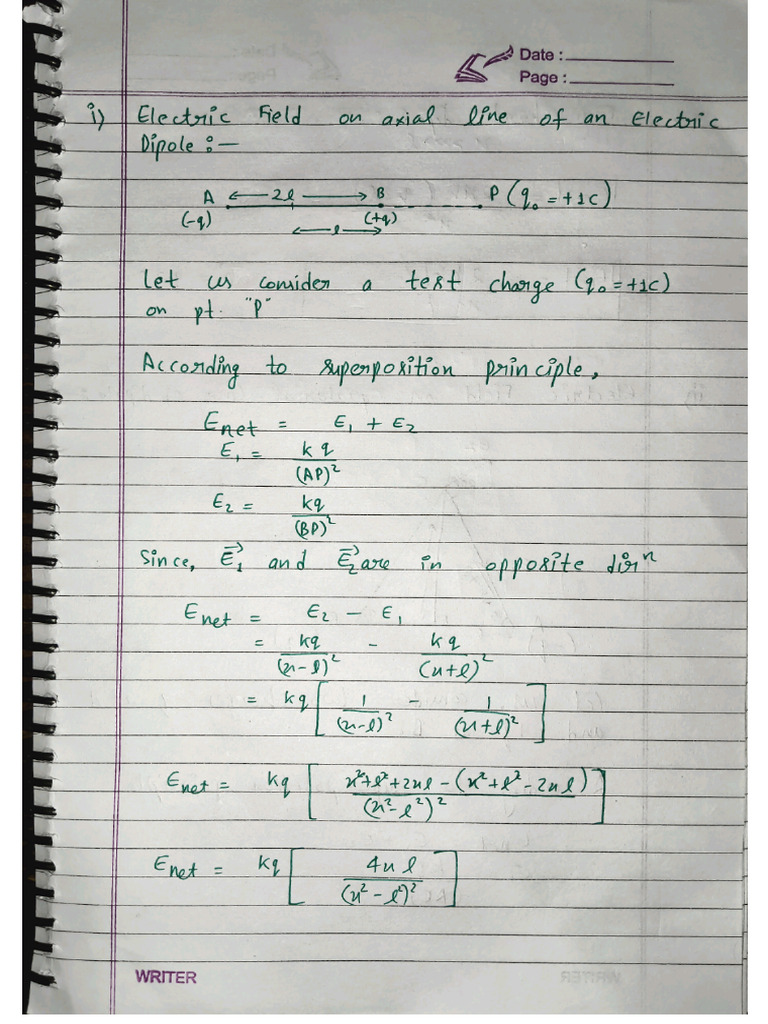 Date :
Page :
i) Electric Field on axial line of an Electric
Dipole :—
A 2l B P (q₀ = +1C)
(-q) (+q)
l
Let us consider a test charge (q₀ = +1C)
on pt. "P"
According to superposition principle,
E_net = E₁ + E₂
E₁ = kq/(AP)²
E₂ = kq/(BP)²
Since, E⃗₁ and E⃗₂ are in opposite dirⁿ
E_net = E₂ - E₁
= kq/(x-l)² - kq/(x+l)²
= kq [ 1/(x-l)² - 1/(x+l)² ]
E_net = kq [ x²+l²+2xl-(x²+l²-2xl)/(x²-l²)² ]
E_net = kq [ 4xl/(x²-l²)² ]
WRITER